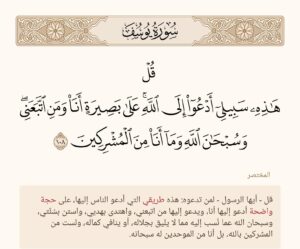 سُورَةُ يُوسُفَ
قُلْ
هَٰذِهِۦ سَبِيلِىٓ أَدْعُوٓا۟ إِلَى ٱللَّهِ ۚ عَلَىٰ بَصِيرَةٍ أَنَا۠ وَمَنِ ٱتَّبَعَنِى ۖ
وَسُبْحَٰنَ ٱللَّهِ وَمَآ أَنَا۠ مِنَ ٱلْمُشْرِكِينَ ١٠٨
المختصر
قل - أيها الرسول - لمن تدعوه: هذه طريقي التي أدعو الناس إليها، على حجة
واضحة أدعو إليها أنا، ويدعو إليها من اتبعني، واهتدى بهديي، واستن بسُنَّتي،
وسبحان الله عما نُسب إليه مما لا يليق بجلاله، أو ينافي كماله، ولست من
المشركين بالله، بل أنا من الموحدين له سبحانه.